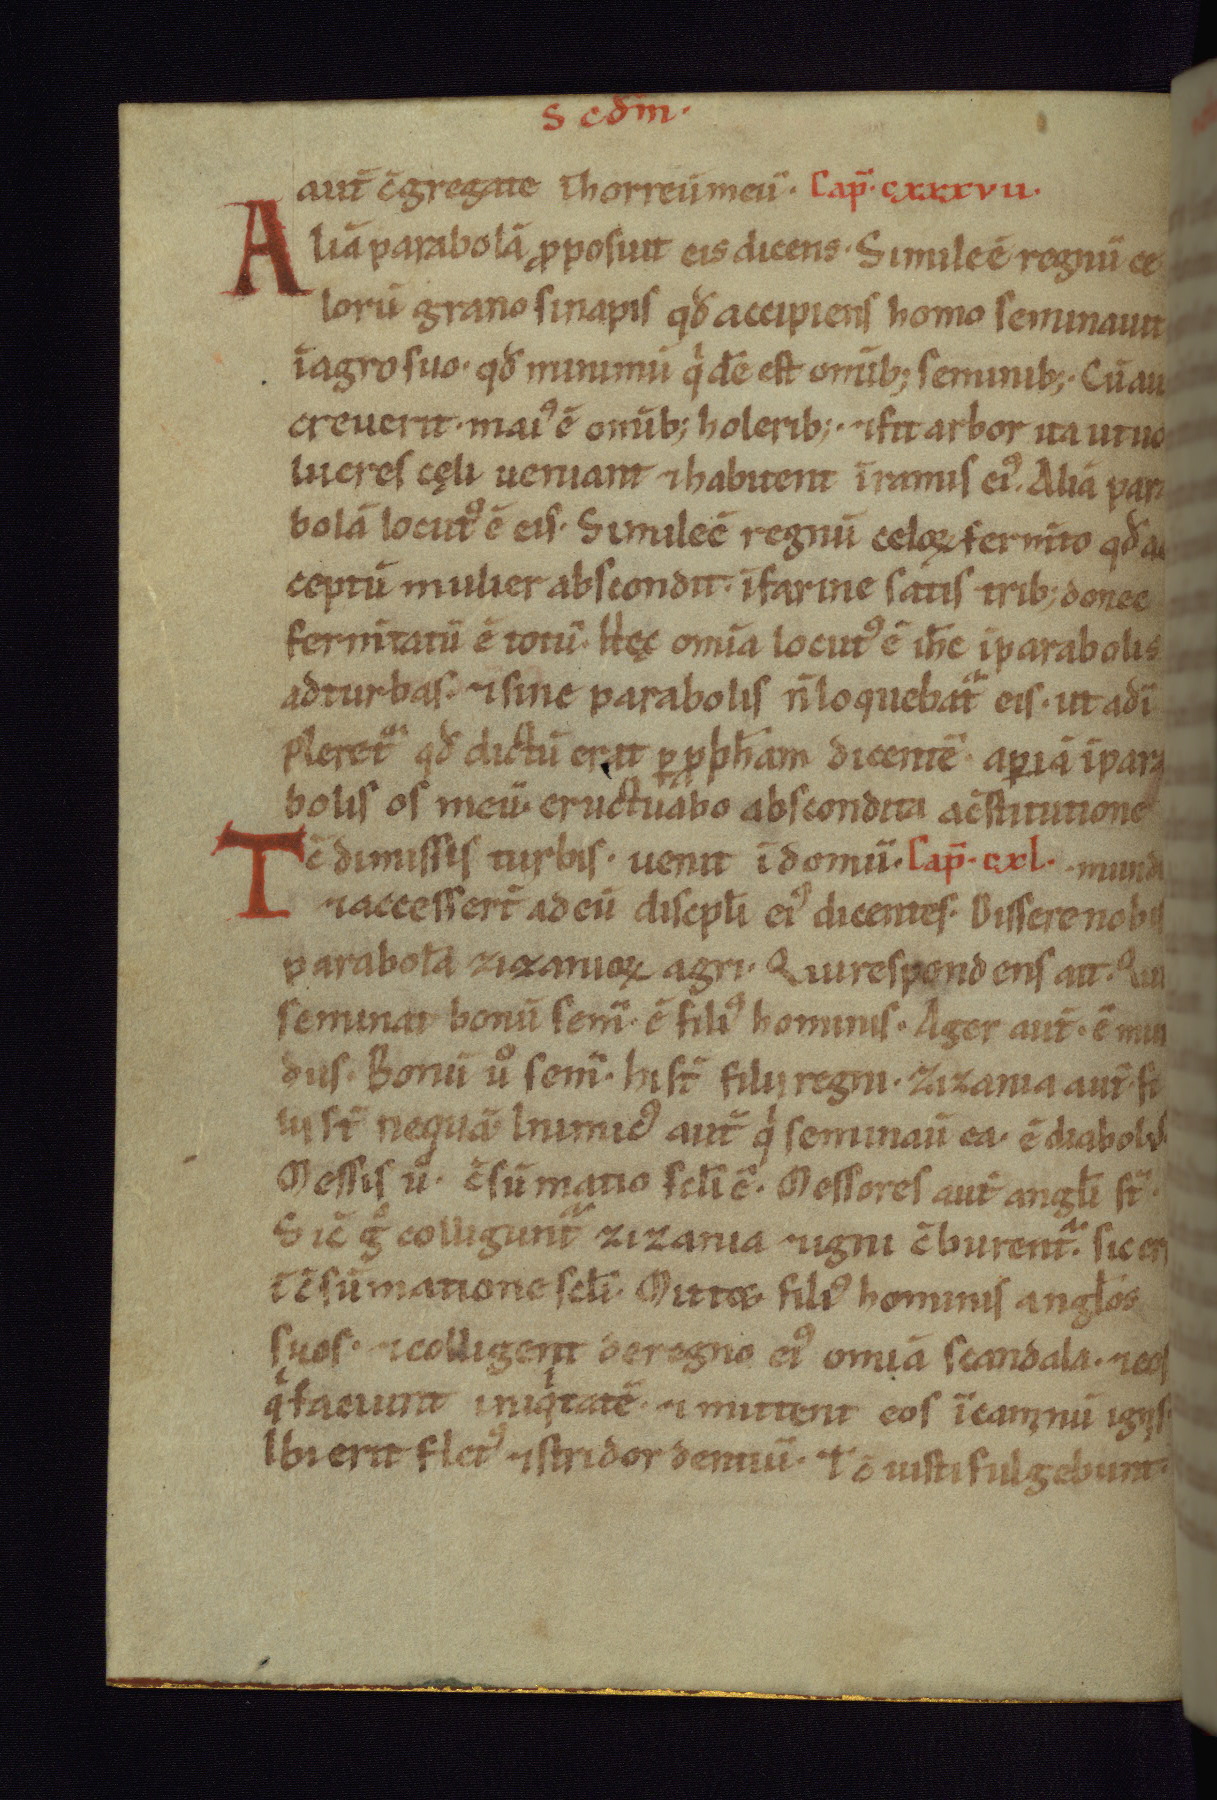 Scdm̄·
aut̄ c̄gregate īhorreūmeū· Cap̄· cxxxvii·
Aliā parabolā ꝓposuit eis dicens· Simile ē regnū ce
lorū grano sinapis qđ accipiens homo seminauit
ī agro suo· qđ minimū qͥdē est omīb; seminib;· Cū au
creuerit· maiꝰ ē omīb; holerib;· ⁊ fit arbor ita ut uo
lucres cęli ueniant ⁊ habitent ī ramis eiꝰ. Aliā para
bolā locutꝰ ē eis· Simile ē regnū celoꝝ fermīto qđ ac
ceptū mulier abscondit· ī farine satis trib; donec
fermītatū ē totū· Hęc omīa locutꝰ ē ih̄c ī parabolis
ad turbas· ⁊ sine parabolis n̄ loquebat᷑ eis· ut adī
pleret᷑ qđ dictū erat ꝑ ꝓph̄am dicentē· aꝑiā ī para
bolis os meū· eructuabo abscondita a c̄stitutione
Tc̄ dimissis turbis· uenit ī domū· Cap̄· cxl· ·mundi
⁊ accessert̄ ad eū discipl̄i eiꝰ dicentes· Dissere nobis
parabolā zizanioꝝ agri· Qui respondens ait· Qui
seminat bonū sem̄· ē filiꝰ hominis· Ager aut̄· ē mun
dus· Bonū uͦ sem̄· hi st̄ filij regni· Zizania aut̄· fi
lij st̄ nequā· Inimicꝰ aut̄ qͥ seminauı̄ ea· ē diabolus·
Messis uͦ· c̄sūmatio scl̄i ē· Messores aut̄ angl̄i st̄·
Sic̄ gͦ colligunt᷑ zizania ⁊ igni c̄burent᷑· sic eri
ī c̄sūmatione scl̄i· Mittet filiꝰ hominis angl̄os
suos· ⁊ colligent de regno eiꝰ omīa scandala· ⁊ eos
qͥ faciunt iniqͥtatē· ⁊ mittent eos ī caminū ignis·
Ibi erit fletꝰ ⁊ stridor dentiū· Tc̄ iusti fulgebunt·